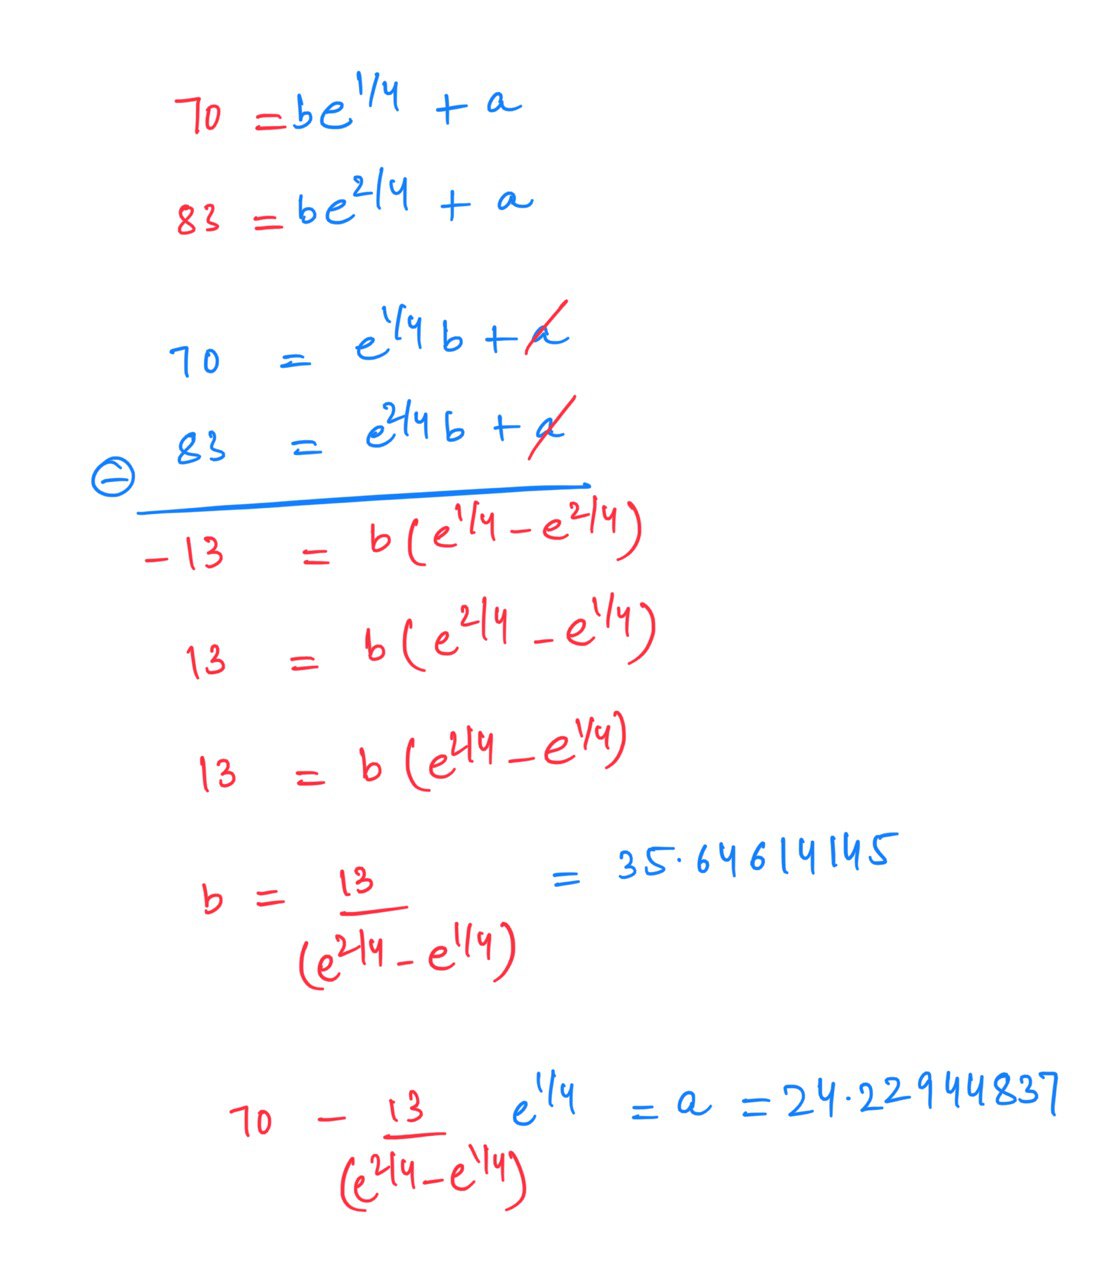 70 = be^1/4 + a
83 = be^2/4 + a
70 = e^1/4 b + a
83 = e^2/4 b + a
⊖
-13 = b(e^1/4 - e^2/4)
13 = b(e^2/4 - e^1/4)
13 = b(e^2/4 - e^1/4)
b = 13/(e^2/4 - e^1/4) = 35.64614145
70 - 13/(e^2/4 - e^1/4) e^1/4 = a = 24.22944837